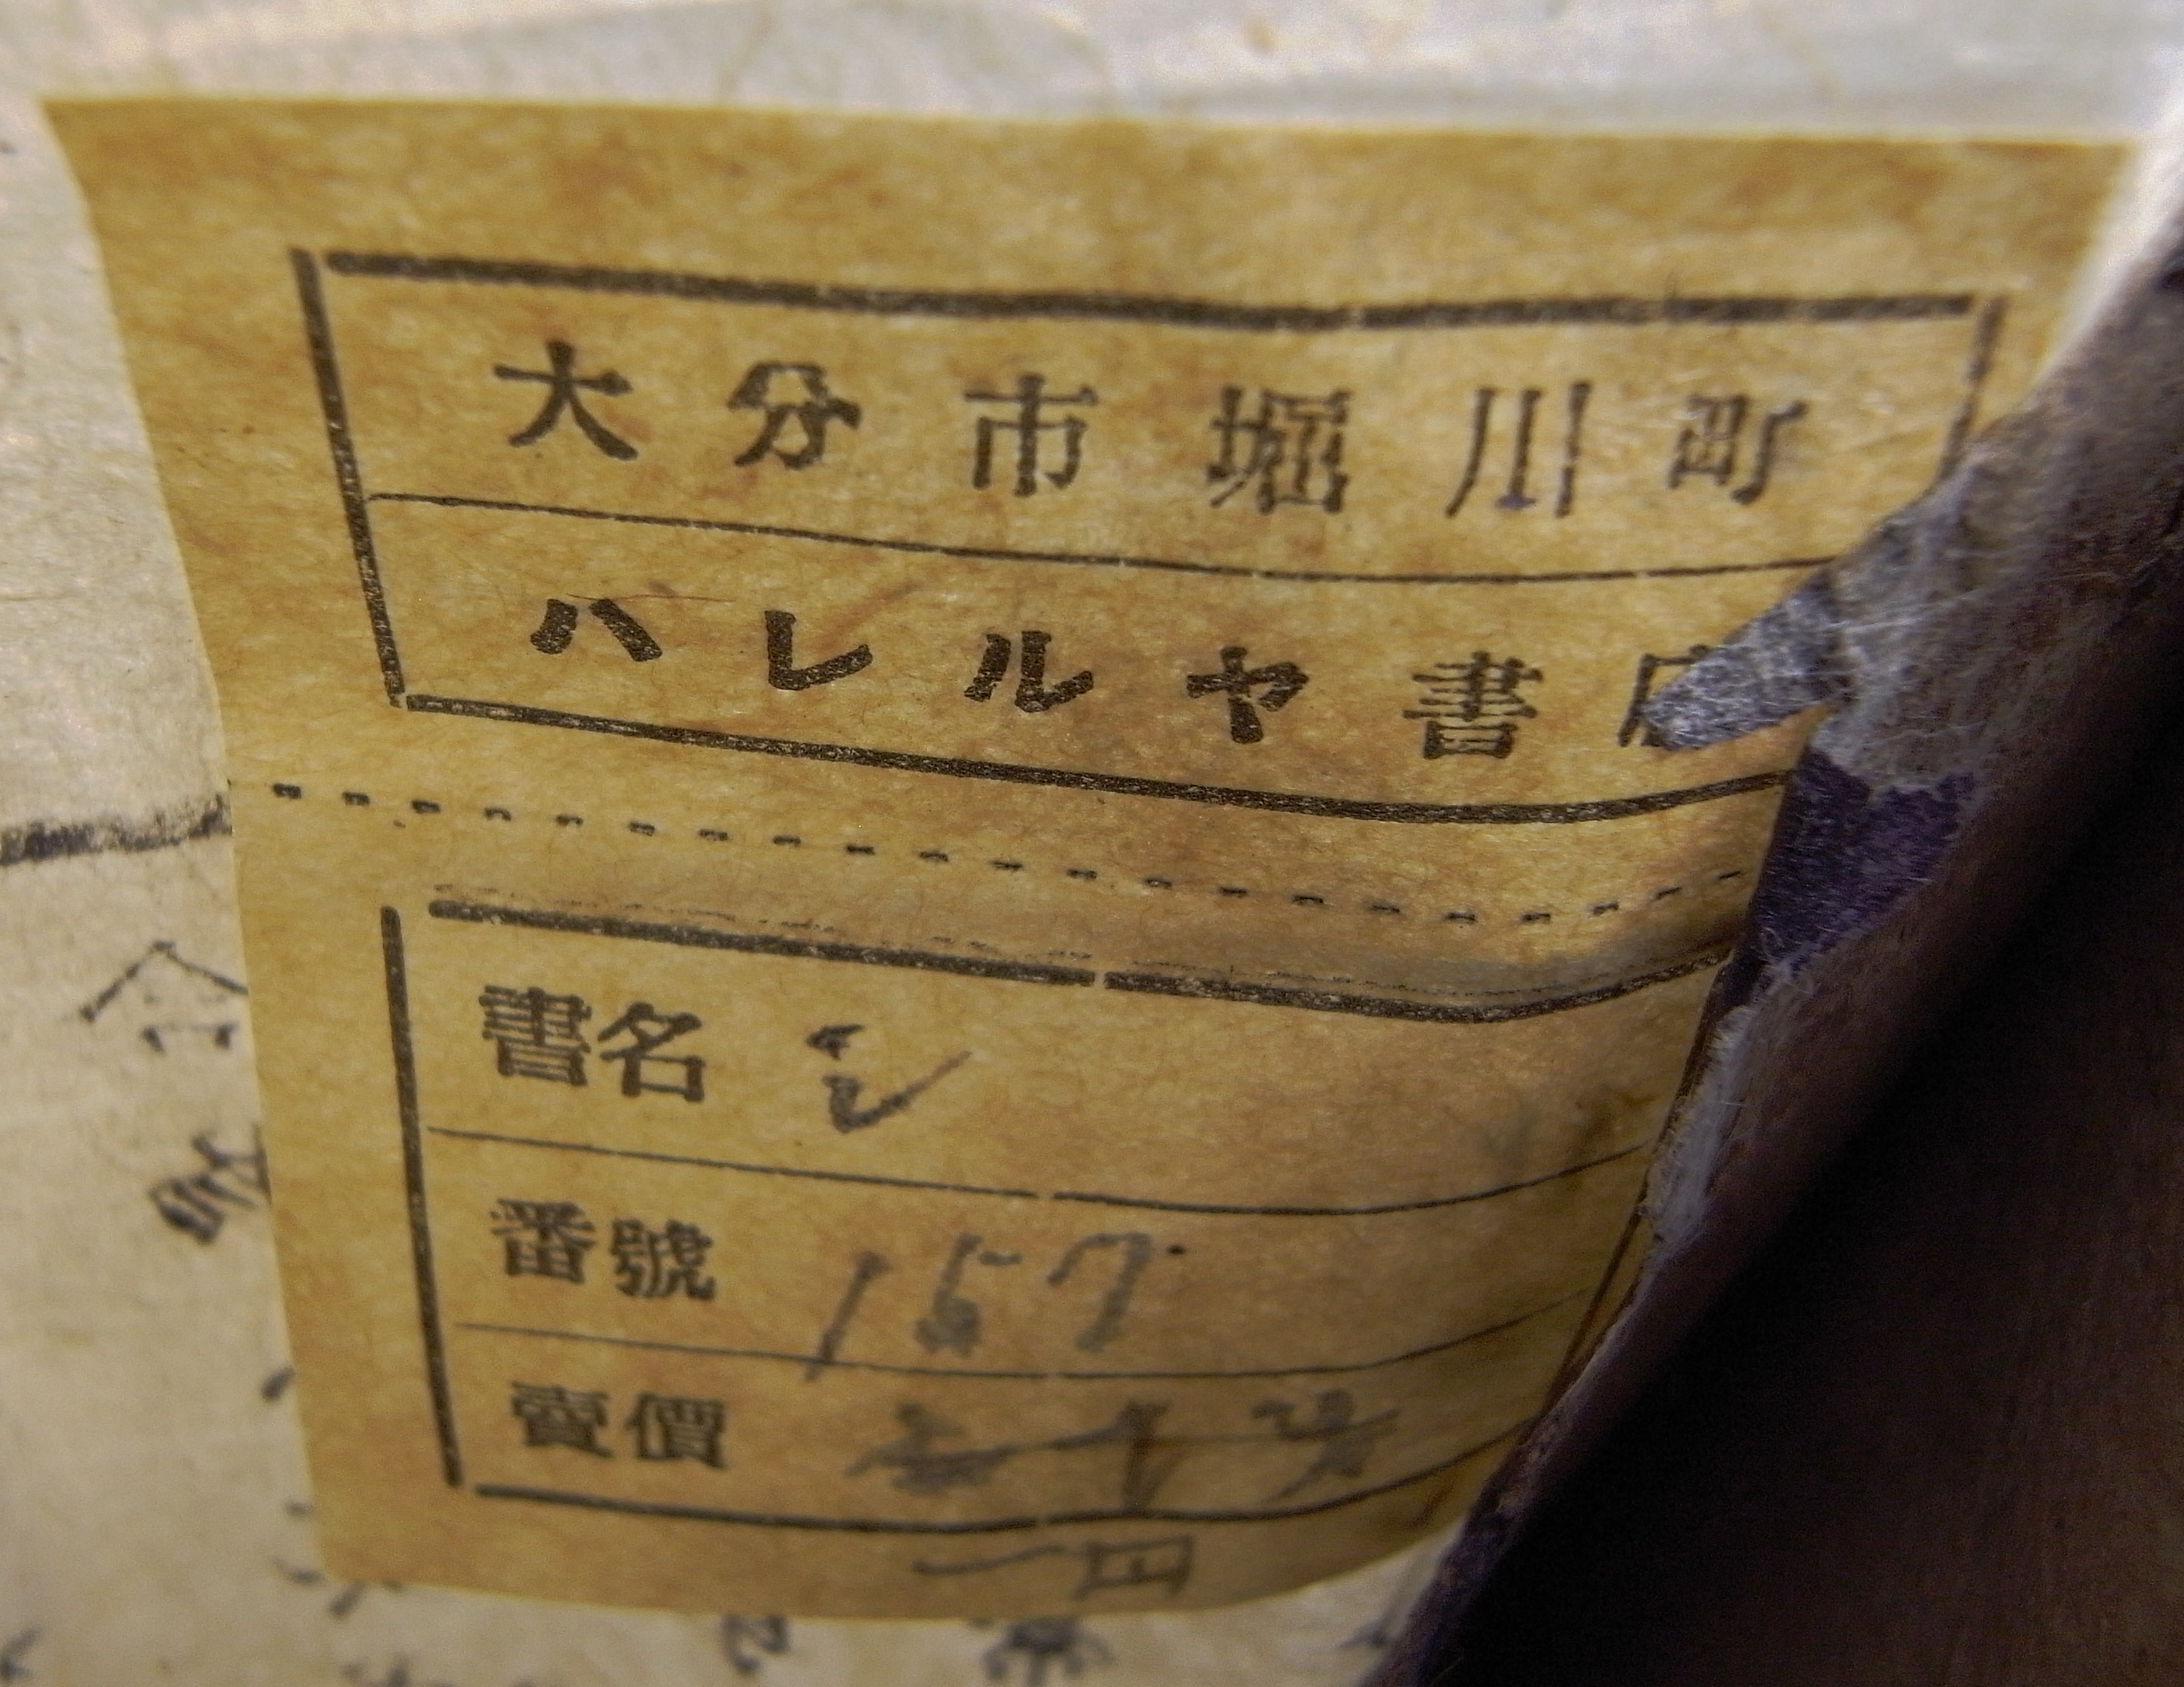 大分市堀川町
ハレルヤ書店
書名 シ
番號 157
賣價
一円